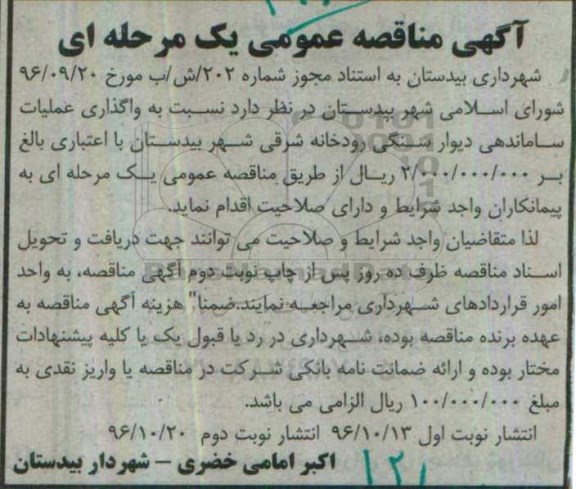 آگهی مناقصه عمومی یک مرحله ای
شهرداری بیدستان به استناد مجوز شماره ۲۰۲/ش/ب مورخ ۹۶/۰۹/۲۰
شورای اسلامی شهر بیدستان در نظر دارد نسبت به واگذاری عملیات
ساماندهی دیوار سنگی رودخانه شرقی شهر بیدستان با اعتباری بالغ
بر ۲/۰۰۰/۰۰۰/۰۰۰ ریال از طریق مناقصه عمومی یک مرحله ای به
پیمانکاران واجد شرایط و دارای صلاحیت اقدام نماید.
لذا متقاضیان واجد شرایط و صلاحیت می توانند جهت دریافت و تحویل
اسناد مناقصه ظرف ده روز پس از چاپ نوبت دوم آگهی مناقصه، به واحد
امور قراردادهای شهرداری مراجعه نمایند.ضمنا" هزینه آگهی مناقصه به
عهده برنده مناقصه بوده، شهرداری در رد یا قبول یک یا کلیه پیشنهادات
مختار بوده و ارائه ضمانت نامه بانکی شرکت در مناقصه یا واریز نقدی به
مبلغ ۱۰۰/۰۰۰/۰۰۰ ریال الزامی می باشد.
انتشار نوبت اول ۹۶/۱۰/۱۳ انتشار نوبت دوم ۹۶/۱۰/۲۰
اکبر امامی خضری - شهردار بیدستان